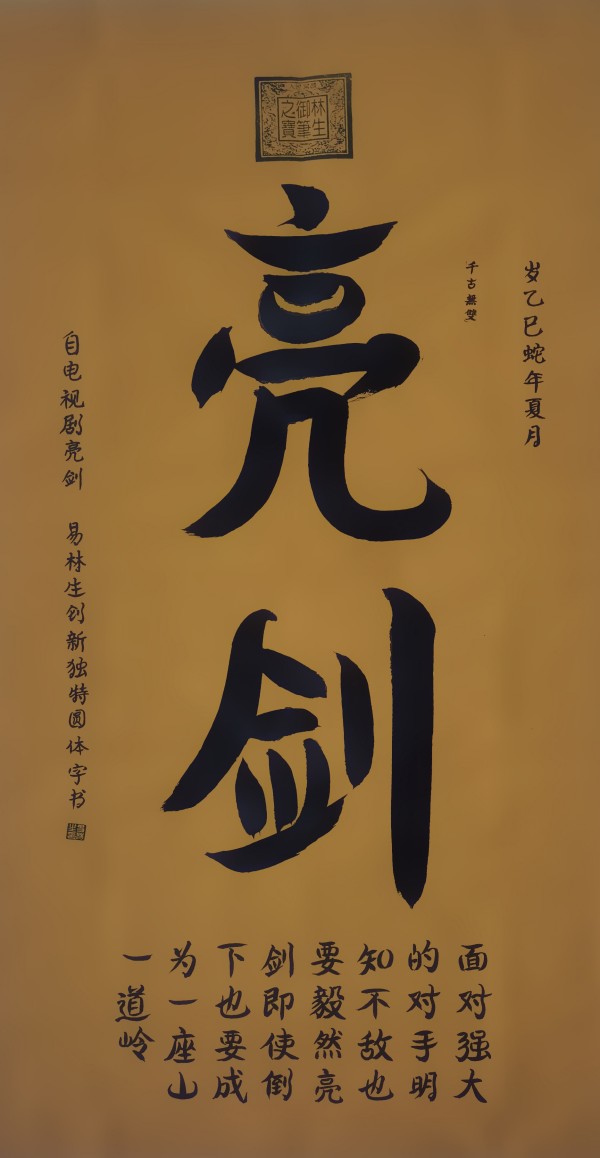 林生
御筆
之寶
亮剑
岁乙巳蛇年夏月
千古無雙
面对强大
的对手明
知不敌也
要毅然亮
剑即使倒
下也要成
为一座山
一道岭
自电视剧亮剑 易林生创新独特圆体字书